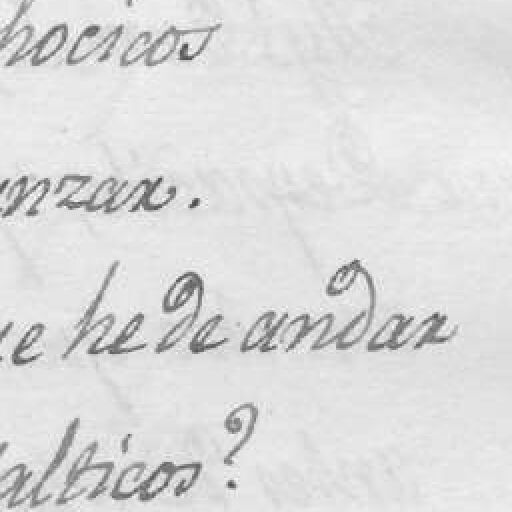 hocicos
nzar.
ue he de andar
alticos?